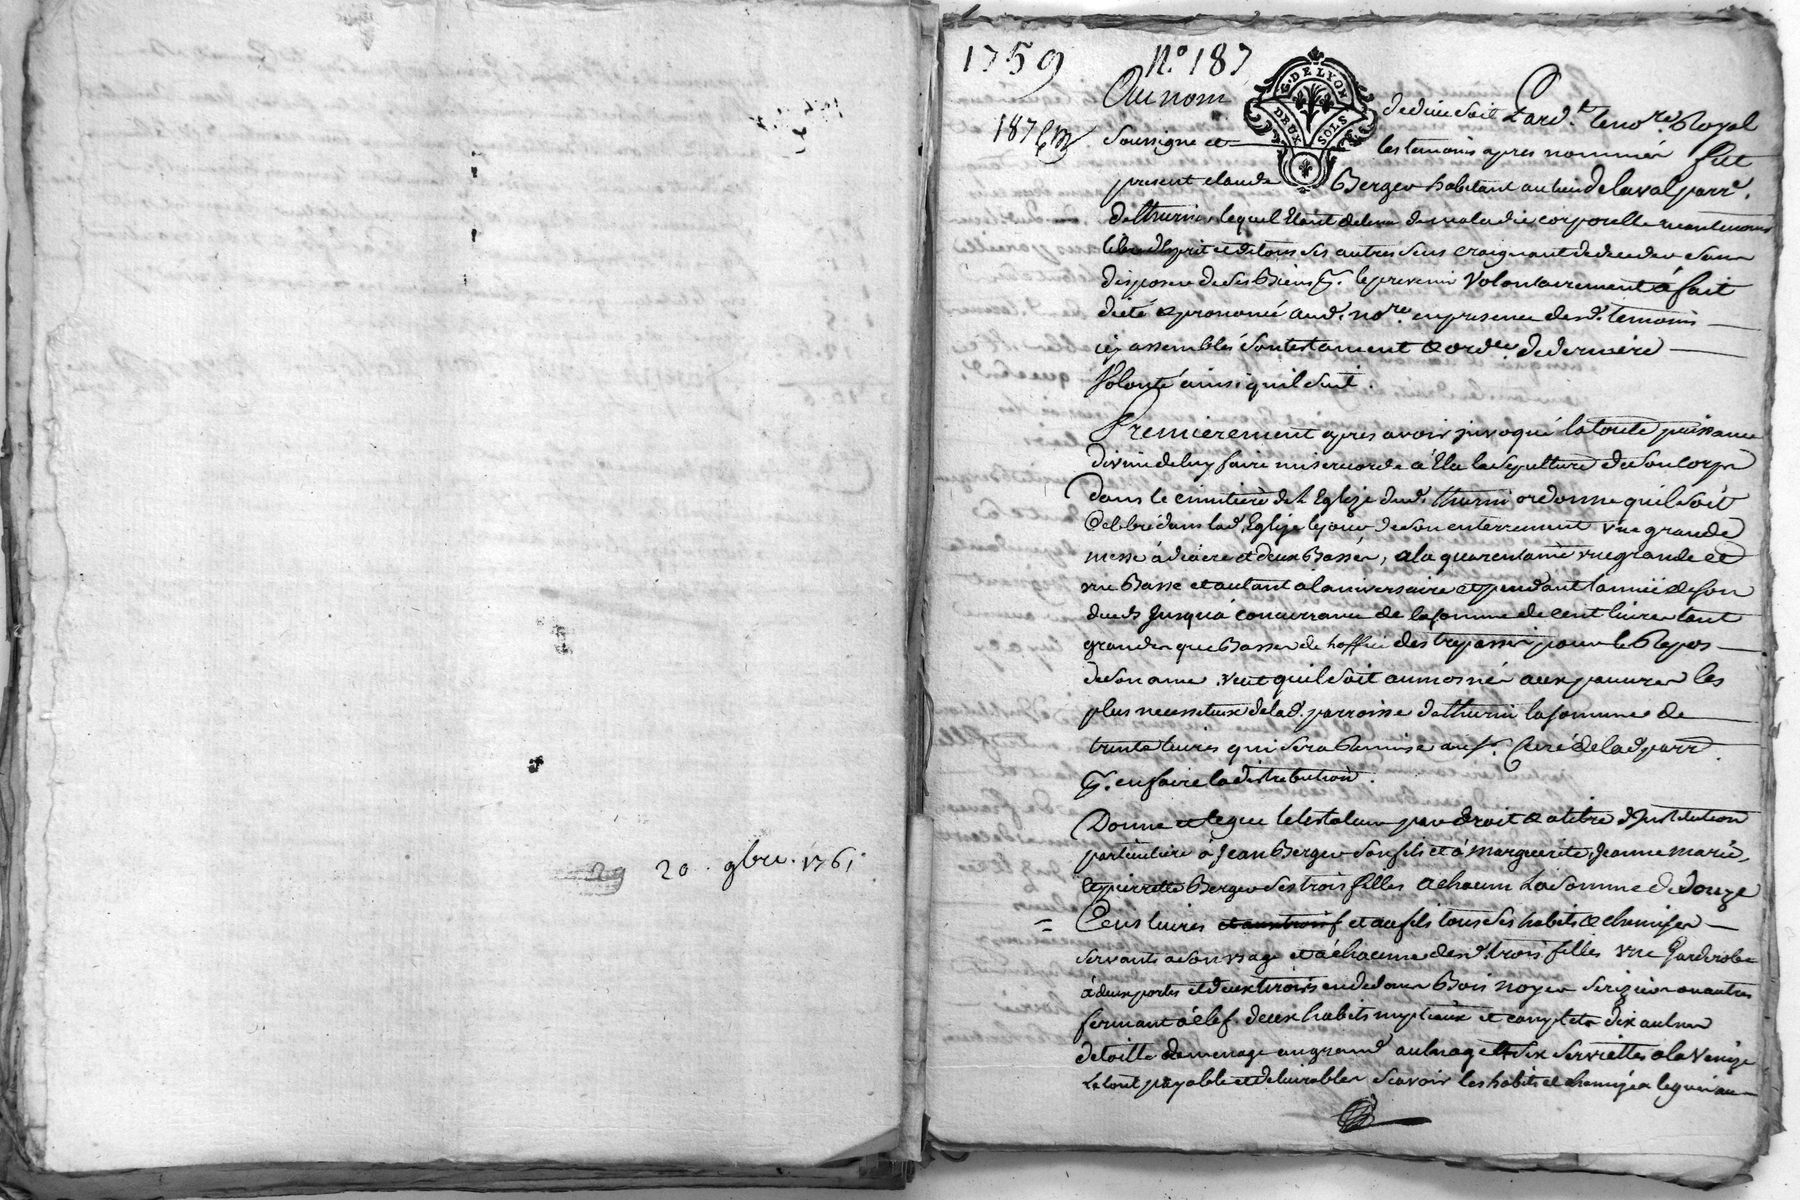 20. 9bre. 1761.
1759 N.º 187
G. DE LYON
DEUX SOLS
187
Au nom de dieu soit Pard.t le no.re Royal
soussigné et les temoins apres nommés fut
present claude Berger habitant au lieu de laval parr.
de thurin lequel Etant detenu de maladie corporelle neantmoins
libre d'Esprit et de tous ses autres sens craignant de deceder sans
disposer de ses Biens p.r le prevenir volontairement à fait
dicté & prononcé aud. no.re en presence desd. temoins
icy assemblés son testament & ord.ce de derniere
Volonté ainsi quil suit.
Premierement apres avoir invoqué la toute puissance
divine de luy faire misericorde à Elu la sepulture de son corps
dans le cimitiere de l'Eglize dud. thurin ordonne quil soit
Celebré dans lad. Eglize le jour de son enterrement une grande
messe à diacre et deux Basses, a la quarentaine une grande et
une Basse et autant a laniversaire et pendant l'année de son
deceds Jusqua concurrance de la somme de cent livres tant
grandes que Basses de l'office des trepassés pour le Repos
de son ame. veut quil soit aumosné aux pauvres les
plus necessiteux de lad. parroisse de thurin la somme de
trente livres qui sera Remise au s.r Curé de lad. parr.
p.r en faire la distribution.
Donne et legue le testateur par droit & a titre d'Institution
particuliere à Jean Berger son fils et à marguerite, Jeanne marie,
et pierrette Berger ses trois filles a chacun La somme de Douze
Cens livres et aux trois f et au fils tous ses habits & chemises
servants a son usage et à chacune desd. trois filles une garderobe
à deux portes et deux tiroirs en dedans Bois noyer serizier ou autres
fermant à clef. deux habits nuptiaux et complets dix aulnes
de toille de menage au grand aulnage et six serviettes a la Venize
Le tout payable et delivrables scavoir les habits et chemises